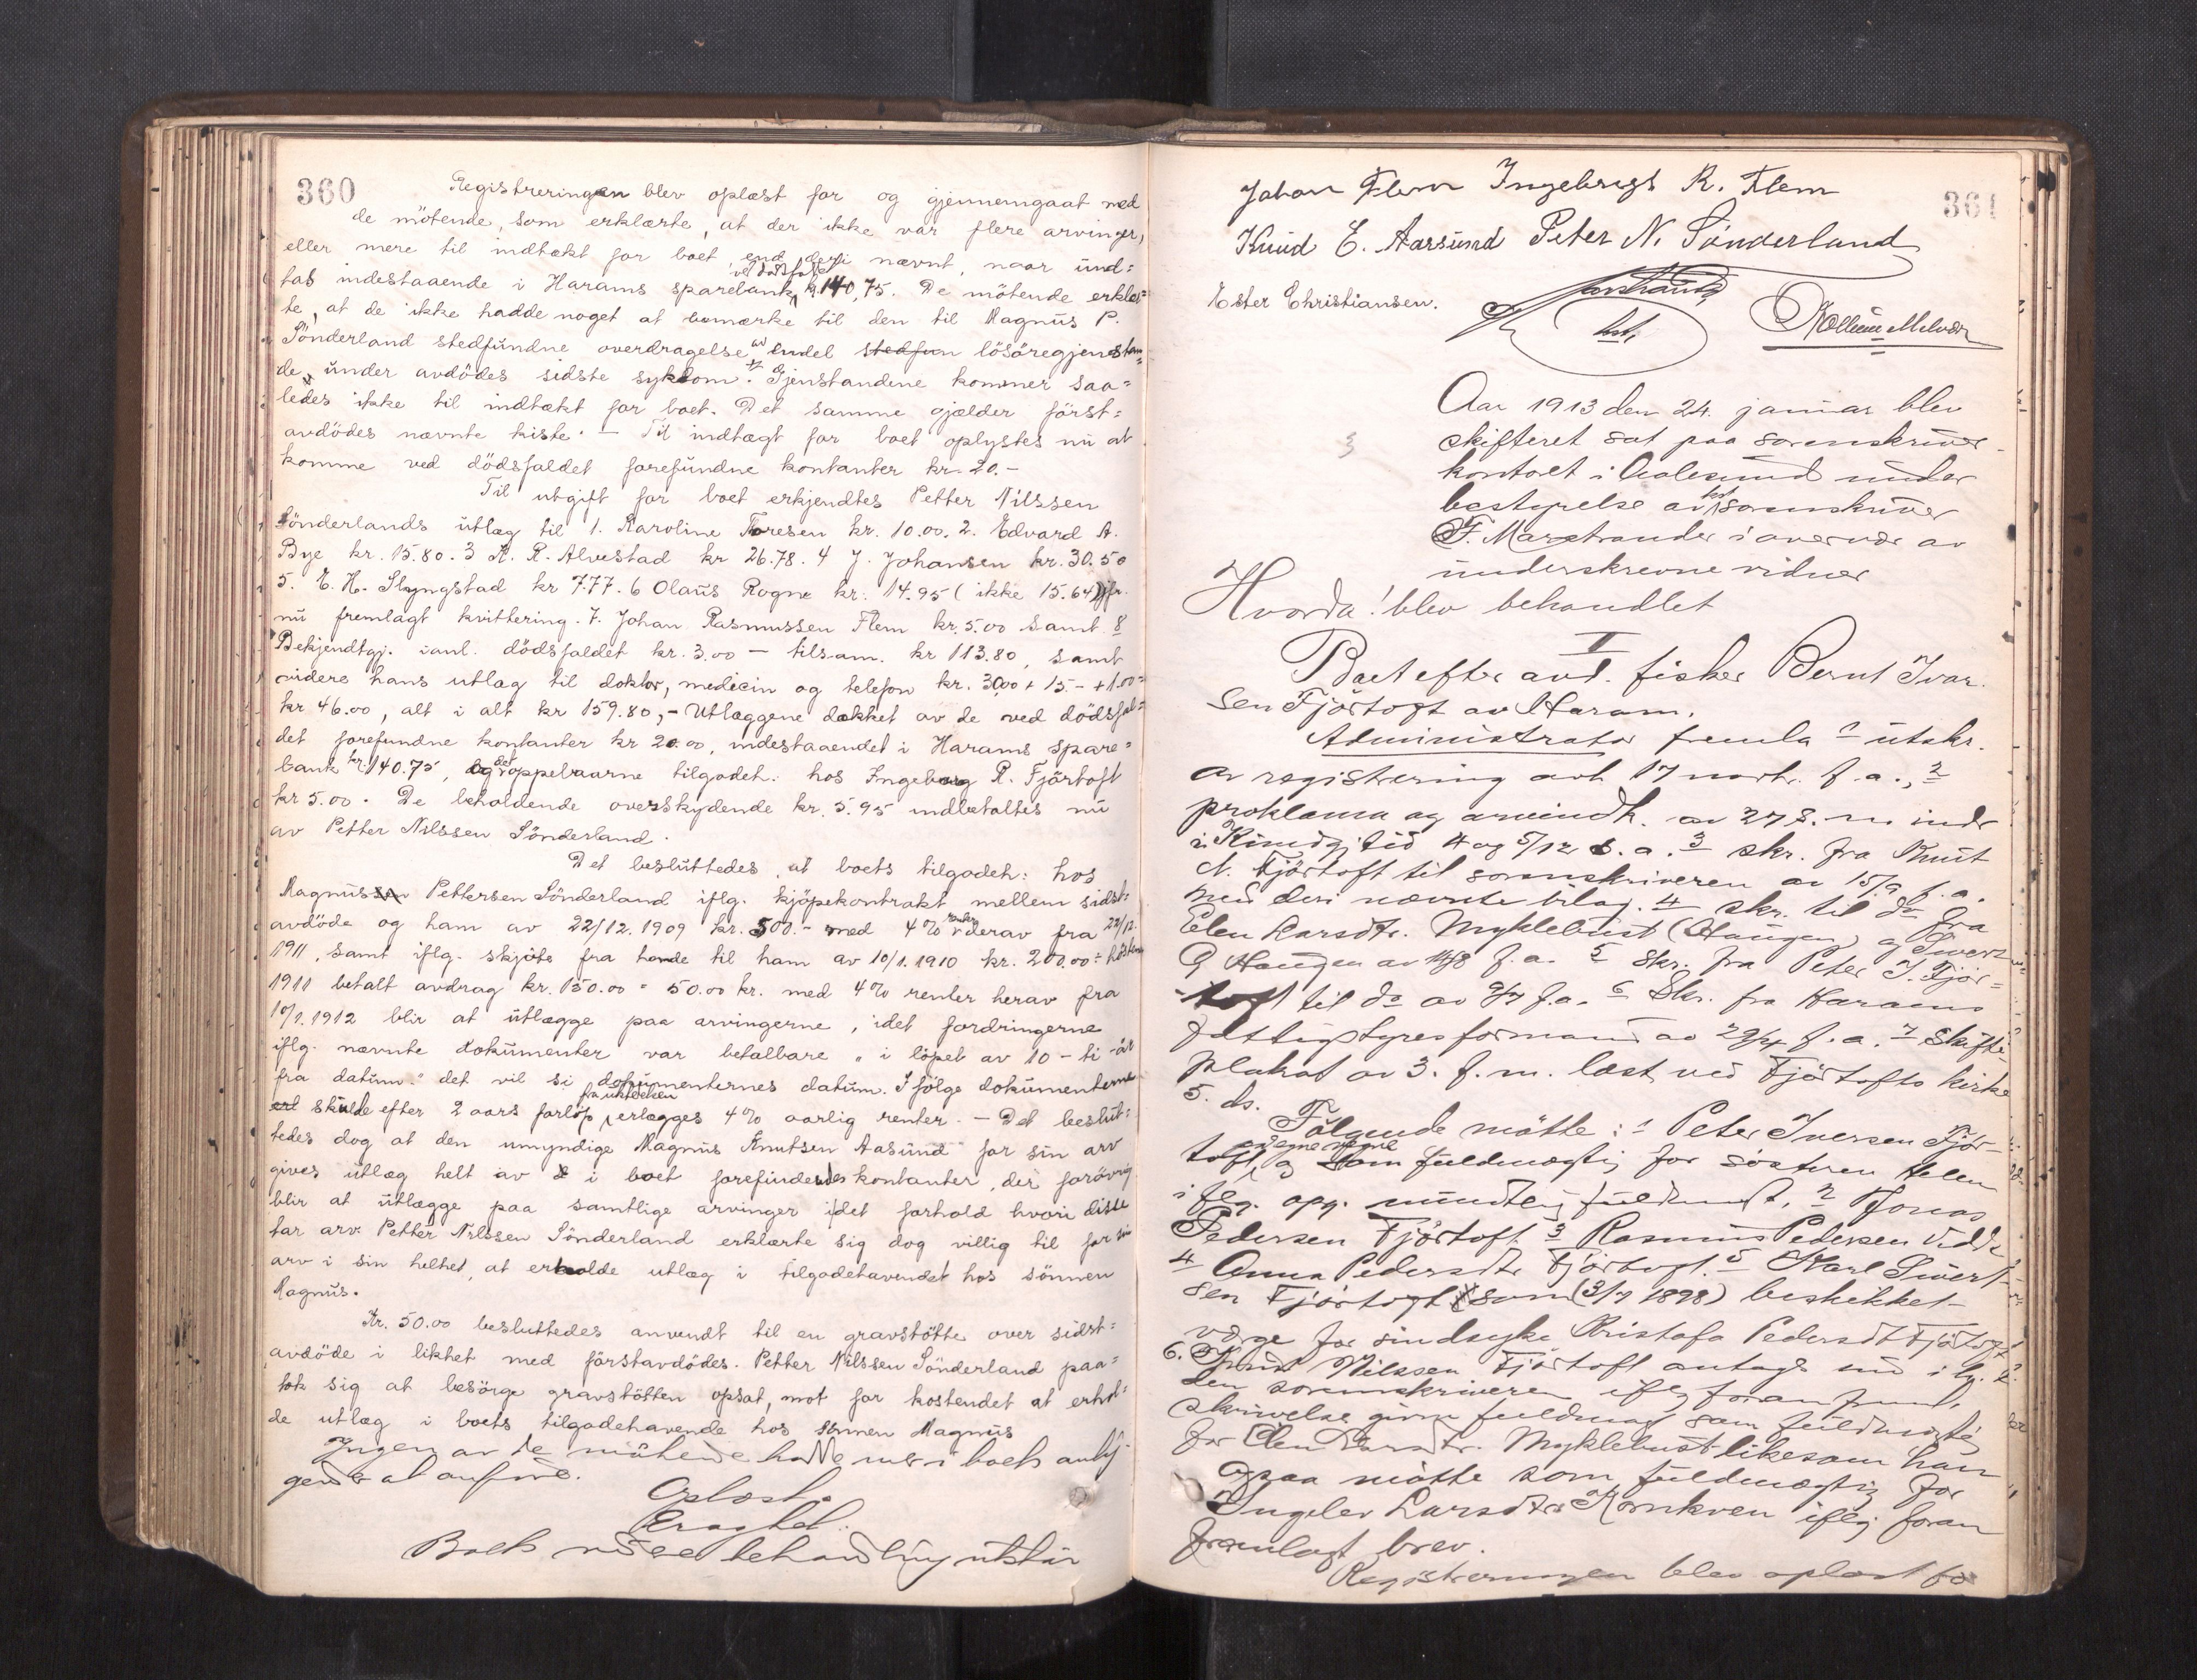 360
Registreringen blev oplæst for og gjennemgaat med
de mötende, som erklærte, at der ikke var flere arvinger,
eller mere til indtækt for boet, end deri nævnt, naar und=
tas indestaaende i Harams sparebank ved dödsfaldet kr. 140,75. De mötende erklær=
te, at de ikke hadde noget at bemærke til den til Magnus P.
Sönderland stedfundne overdragelse av endel stedfun lösöregjenstan=
de under avdödes sidste sykdom. Gjenstandene kommer saa=
ledes ikke til indtækt for boet. Det samme gjælder först=
avdödes nævnte kiste. — Til indtægt for boet oplystes nu at
komme ved dödsfaldet forefundne kontanter kr. 20.-
Til utgift for boet erkjendtes Petter Nilssen
Sönderlands utlæg til 1. Karoline Toresen kr. 10.00. 2. Edvard A.
Bye kr. 15.80. 3 K. R. Alvestad kr 26.78. 4 J. Johansen kr. 30.50
5. E. H. Slyngstad kr 7.77. 6 Olaus Rogne kr. 14.95 (ikke 15.64) jfr.
nu fremlagt kvittering. 7. Johan Rasmussen Flem kr. 5.00 samt 8
Bekjendtgj. i anl. dödsfaldet kr. 3.00 — tilsam. kr 113.80, samt
videre hans utlæg til doktor, medicin og telefon kr. 30.00 + 15.- + 1.00 =
kr 46.00, alt i alt kr 159.80,- Utlæggene dækket av de ved dödsfal=
det forefundne kontanter kr 20.00, indestaaendet i Harams spare=
bank kr. 140.75, og det oppebaarne tilgodeh. hos Ingeborg R. Fjörtoft
kr 5.00. De beholdende overskydende kr. 5.95 indbetaltes nu
av Petter Nilssen Sönderland.
Det besluttedes, at boets tilgodeh. hos
Magnus Pettersen Sönderland iflg. kjöpekontrakt mellem sidst=
avdöde og ham av 22/12. 1909 kr. 500.- med 4% renter derav fra 22/12.
1911, samt iflg. skjöte fra hende til ham av 10/1. 1910 kr. 200.00 ÷ hösten
1911 betalt avdrag kr. 150.00 = 50.00 kr. med 4% renter herav fra
10/1. 1912 blir at utlægge paa arvingerne, idet fordringerne
iflg. nævnte dokumenter var betalbare "i löpet av 10 - ti - år
fra datum." det vil si dokumenternes datum. Ifölge dokumenterne
skulde efter 2 aars forlöp fra utstedelsen erlægges 4% aarlig renter. — Det beslut=
tedes dog at den umyndige Magnus Knutsen Aasund for sin arv
gives utlæg helt av i boet forefindendes kontanter, der forövrig
blir at utlægge paa samtlige arvinger i det forhold hvori disse
tar arv. Petter Nilssen Sönderland erklærte sig dog villig til for sin
arv i sin helhet, at erholde utlæg i tilgodehavendet hos sönnen
Magnus.
Kr. 50.00 besluttedes anvendt til en gravstötte over sidst=
avdöde i likhet med förstavdödes. Petter Nilssen Sönderland paa=
tok sig at besörge gravstötten opsat, mot for kostendet at erhol=
de utlæg i boets tilgodehavende hos sönnen Magnus
Ingen av de mötende hadde mer i boets anlig=
gender at anföre.
Oplæst.
Vedtaget.
Boets videre behandling utstår
361
Johan Flem Ingebrigt R. Flem
Knud E. Aarsund Peter N. Sönderland
Ester Christiansen.
Marstrander
kst.
Aar 1913 den 24. januar blev
skifteret sat paa sorenskriver
kontoret i Aalesund under
bestyrelse av kst. sorenskriver
F. Marstrander i overvær av
underskrevne vidner
Hvorda! blev behandlet
II
Boet efter avd. fisker Bernt Ivar
sen Fjörtoft av Haram.
Administrator fremla 1 utskr.
av registrering avh. 17 novb. f. a., 2
proklama og arveindk. av 27 s. m. indr
i Kundgj.tid 4 og 5/12 s. a. 3 skr. fra Knut
N. Fjörtoft til sorenskriveren av 15/9 f. a.
med deri nævnte bilag. 4 skr. til do fra
Elen Larsdtr. Myklebust (Haugen) og Sivert
Haugen av f. a. 5 skr. fra Peter I. Fjör=
toft til do av f. a. 6 Skr. fra Harams
fattigstyresformand av 29/4 f. a. 7 Skifte
plakat av 3. f. m. læst ved Fjörtofts kirke
5. ds.
Fölgende mötte: 1 Peter Iversen Fjör-
toft, paa egne vegne og som fuldmægtig for sösteren Helen
iflg. opg. mundtlig fuldmagt, 2 Jonas
Pedersen Fjörtoft 3 Rasmus Pedersen
4 Anna Pedersdtr Fjörtoft. 5 Karl Sivert
sen Fjörtoft som (3/7 1898) beskikket
værge for sindsyke Kristofa Pedersdt Fjörtoft
6. Knut Nilssen Fjörtoft antagt
den sorenskriveren iflg foran
skrivelse given fuldmagt som fuldmægtig
for Elen Larsdtr. Myklebust likesom han
ogsaa mötte som fuldmægtig for
Ingelev Larsdtr iflg foran
fremlagt brev.
Registreringen blev oplæst for